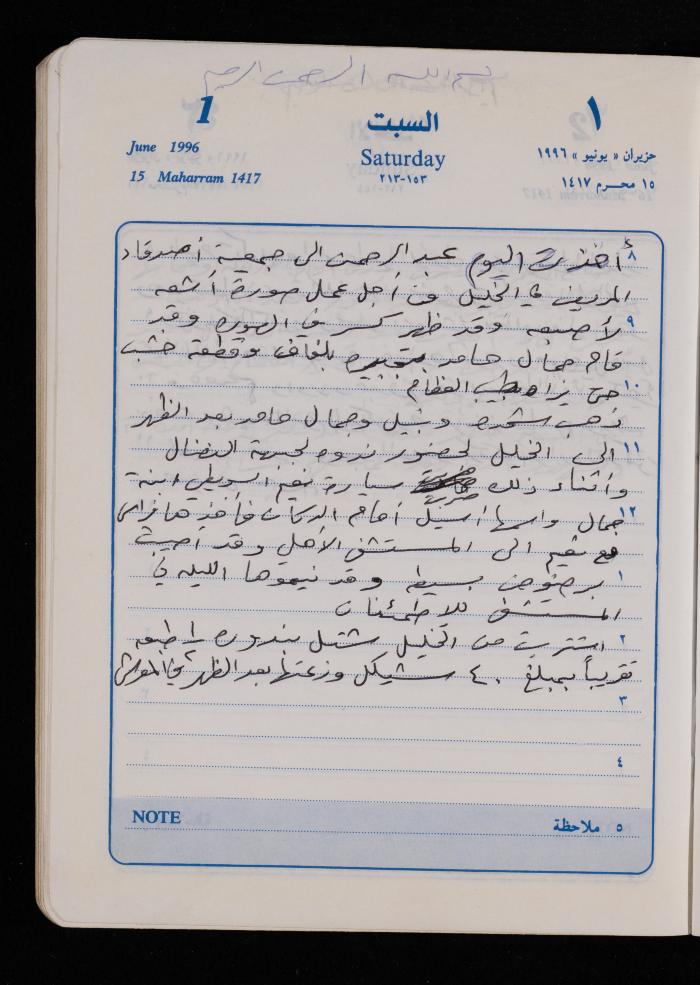 بسم الله الرحمن الرحيم
1 السبت ١
June 1996 Saturday حزيران « يونيو » ١٩٩٦
15 Maharram 1417 ٢١٣-١٥٣ ١٥ محرم ١٤١٧
٨ أخذت اليوم عبد الرحمن الى جمعية أصدقاء
المريض في الخليل من أجل عمل صورة أشعة
٩ لأصبعه وقد ظهر كسر في الصورة وقد
قام جمال حامد بلفاف وقطعة خشب
١٠ حتى يراه طبيب العظام
ذهب شحده ونبيل وجمال حامد بعد الظهر
١١ الى الخليل لحضور ندوه لجبهة النضال
وأثناء ذلك سيارة نعيم ابنة
١٢ جمال واسمها أسيل أمام الدكان فأخذها فراس
مع نعيم الى المستشفى الاهلي وقد أصيبت
١ برضوض بسيطه وقد نيموها الليله في
المستشفى للاطمئنان
٢ اشتريت من الخليل شتل بندوره
تقريباً بمبلغ ٤٠ شيكل وزعتها بعد الظهر في
٣
٤
NOTE ٥ ملاحظة